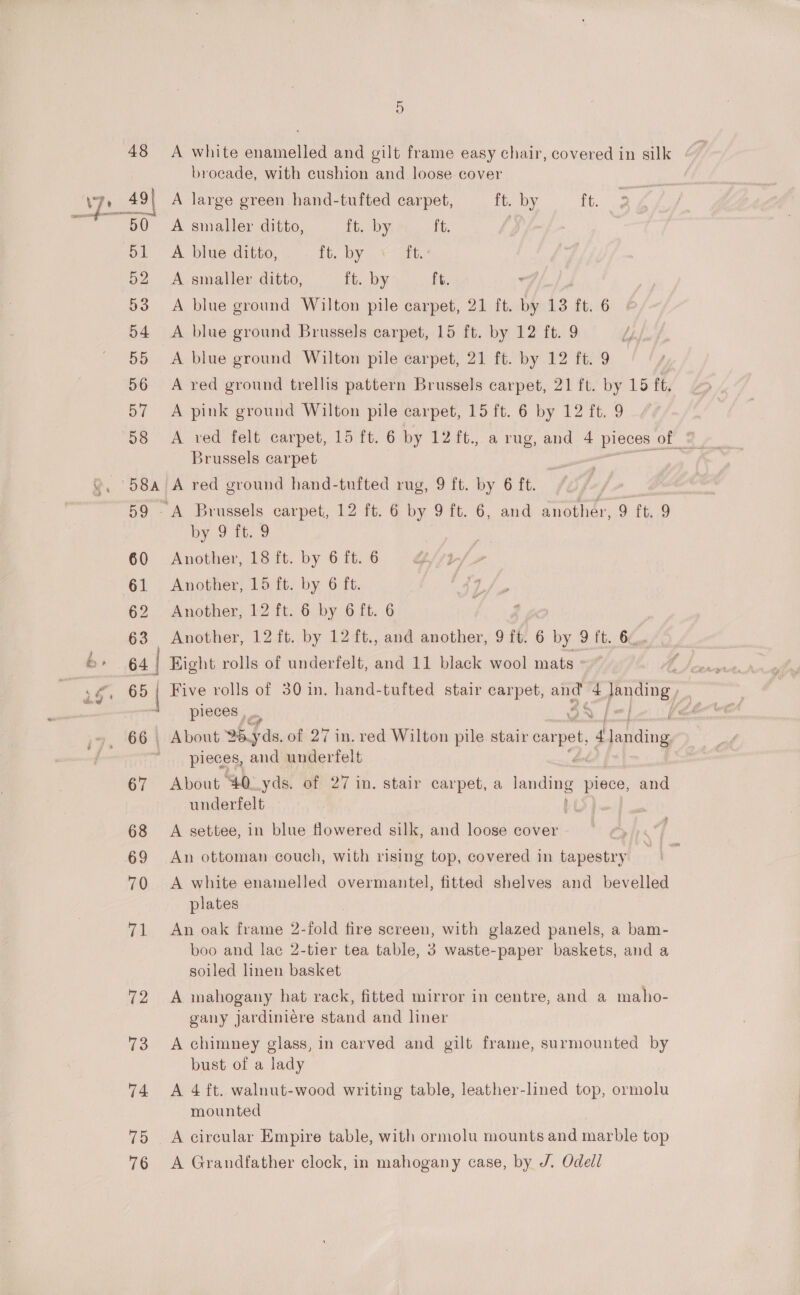 5
48 A white enamelled and gilt frame easy chair, covered in silk
brocade, with cushion and loose cover
49 A large green hand-tufted carpet, ft. by ft.
50 A smaller ditto, ft. by ft.
51 A blue ditto, ft. by ft.
52 A smaller ditto, ft. by ft.
53 A blue ground Wilton pile carpet, 21 ft. by 13 ft. 6
54 A blue ground Brussels carpet, 15 ft. by 12 ft. 9
55 A blue ground Wilton pile carpet, 21 ft. by 12 ft. 9
56 A red ground trellis pattern Brussels carpet, 21 ft. by 15 ft.
57 A pink ground Wilton pile carpet, 15 ft. 6 by 12 ft. 9
58 A red felt carpet, 15 ft. 6 by 12 ft., a rug, and 4 pieces of
Brussels carpet
58A A red ground hand-tufted rug, 9 ft. by 6 ft.
59 A Brussels carpet, 12 ft. 6 by 9 ft. 6, and another, 9 ft. 9
by 9 ft. 9
60 Another, 18 ft. by 6 ft. 6
61 Another, 15 ft. by 6 ft.
62 Another, 12 ft. 6 by 6 ft. 6
63 Another, 12 ft. by 12 ft., and another, 9 ft. 6 by 9 ft. 6
64 Eight rolls of underfelt, and 11 black wool mats
65 Five rolls of 30 in. hand-tufted stair carpet, and 4 landing
pieces
66 About 25 yds. of 27 in. red Wilton pile stair carpet, 4 landing
pieces, and underfelt
67 About 40 yds. of 27 in. stair carpet, a landing piece, and
underfelt
68 A settee, in blue flowered silk, and loose cover
69 An ottoman couch, with rising top, covered in tapestry
70 A white enamelled overmantel, fitted shelves and bevelled
plates
71 An oak frame 2-fold fire screen, with glazed panels, a bam-
boo and lac 2-tier tea table, 3 waste-paper baskets, and a
soiled linen basket
72 A mahogany hat rack, fitted mirror in centre, and a maho-
gany jardinière stand and liner
73 A chimney glass, in carved and gilt frame, surmounted by
bust of a lady
74 A 4 ft. walnut-wood writing table, leather-lined top, ormolu
mounted
75 A circular Empire table, with ormolu mounts and marble top
76 A Grandfather clock, in mahogany case, by J. Odell